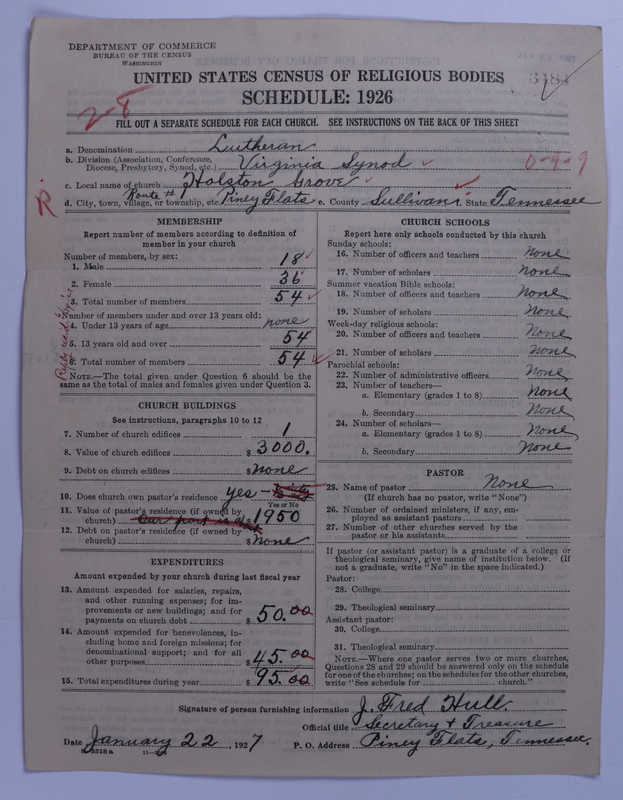 DEPARTMENT OF COMMERCE
BUREAU OF THE CENSUS
WASHINGTON
UNITED STATES CENSUS OF RELIGIOUS BODIES
SCHEDULE: 1926
28
FILL OUT A SEPARATE SCHEDULE FOR EACH CHURCH. SEE INSTRUCTIONS ON THE BACK OF THIS SHEET
a. Denomination Lutheran
b. Division (Association, Conference, Diocese, Presbytery, Synod, etc.) Virginia Synod
0-9-9
c. Local name of church Holston Grove
Route #1
R
d. City, town, village, or township, etc. Piney Flats e. County Sullivan State Tennessee
MEMBERSHIP
Report number of members according to definition of
member in your church
Number of members, by sex:
1. Male 18
2. Female 36
3. Total number of members 54
Number of members under and over 13 years old:
4. Under 13 years of age none
5. 13 years old and over 54
6. Total number of members 54
NOTE.—The total given under Question 6 should be the
same as the total of males and females given under Question 3.
CHURCH BUILDINGS
See instructions, paragraphs 10 to 12
7. Number of church edifices 1
8. Value of church edifices $ 3000.
9. Debt on church edifices $ None
10. Does church own pastor's residence yes –
Yes or No
11. Value of pastor's residence (if owned by
church) 1950
12. Debt on pastor's residence (if owned by
church) $ None
EXPENDITURES
Amount expended by your church during last fiscal year
13. Amount expended for salaries, repairs,
and other running expenses; for im-
provements or new buildings; and for
payments on church debt $ 50.00
14. Amount expended for benevolences, in-
cluding home and foreign missions; for
denominational support; and for all
other purposes $ 45.00
15. Total expenditures during year $ 95.00
CHURCH SCHOOLS
Report here only schools conducted by this church
Sunday schools:
16. Number of officers and teachers None
17. Number of scholars None
Summer vacation Bible schools:
18. Number of officers and teachers None
19. Number of scholars None
Week-day religious schools:
20. Number of officers and teachers None
21. Number of scholars None
Parochial schools:
22. Number of administrative officers None
23. Number of teachers—
a. Elementary (grades 1 to 8) None
b. Secondary None
24. Number of scholars—
a. Elementary (grades 1 to 8) None
b. Secondary None
PASTOR
25. Name of pastor None
(If church has no pastor, write "None")
26. Number of ordained ministers, if any, em-
ployed as assistant pastors
27. Number of other churches served by the
pastor or his assistants
If pastor (or assistant pastor) is a graduate of a college or
theological seminary, give name of institution below. (If
not a graduate, write "No" in the space indicated.)
Pastor:
28. College
29. Theological seminary
Assistant pastor:
30. College
31. Theological seminary
NOTE.—Where one pastor serves two or more churches,
Questions 28 and 29 should be answered only on the schedule
for one of the churches; on the schedules for the other churches,
write "See schedule for church."
Signature of person furnishing information J. Fred Hull
Official title Secretary & Treasure
Date January 22, 1927 P. O. Address Piney Flats, Tennessee.